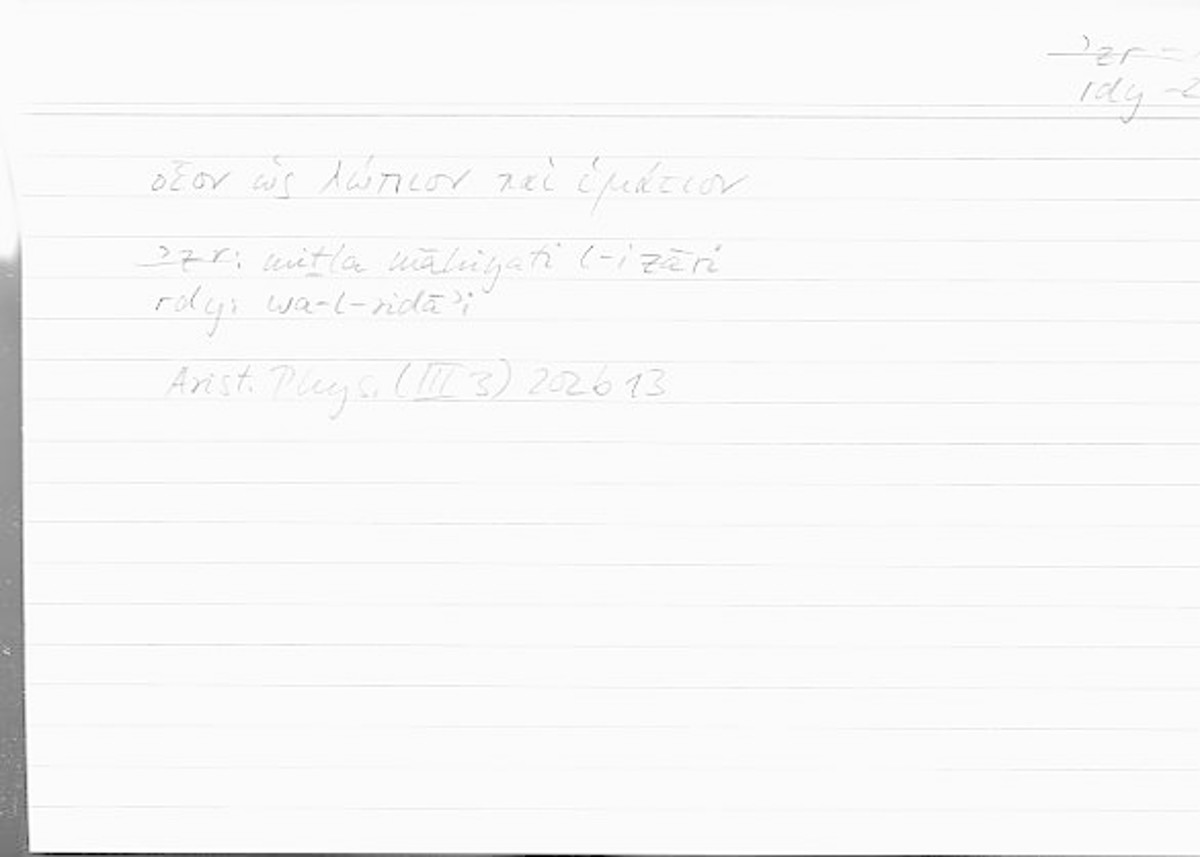 ʾzr –
rdy –2
οἷον ὡς λώπιον καὶ ἱμάτιον
ʾzr: miṯla māhiyati l-izāri
rdy: wa-l-ridāʾi
Arist. Phys. (III 3) 202b13